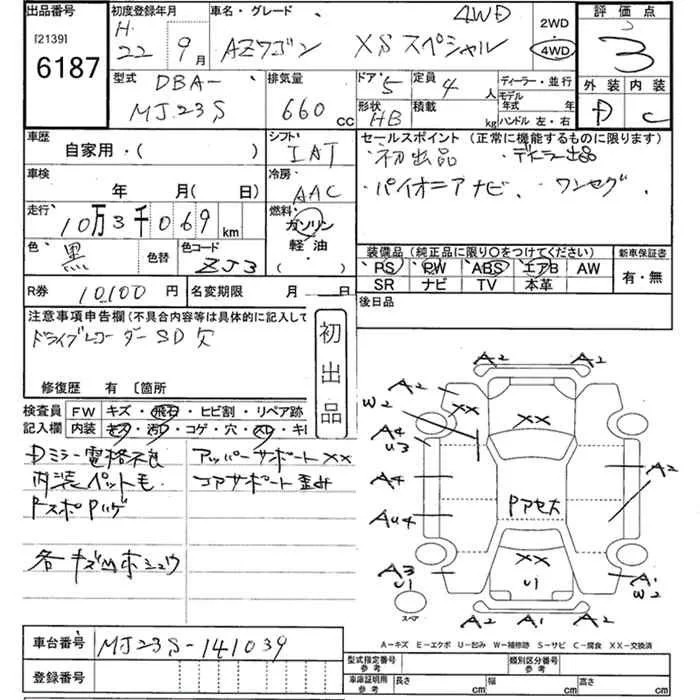 出品番号
[2139]
6187
初度登録年月
H
22 9月
車名・グレード
4WD
AZワゴン XSスペシャル
2WD
・
4WD
評価点
3
外装 内装
D C
型式 DBA-
MJ23S
排気量
660 cc
ドア 5
形状 HB
定員 4 人
積載 kg
ディーラー・並行
モデル
年式 年
ハンドル 左・右
車歴
自家用・( )
車検
年 月(日)
走行
10万3千069 km
色 黒 色替
色コード
ZJ3
シフト
IAT
冷房
AAC
燃料
ガソリン
軽油
・( )
セールスポイント (正常に機能するものに限ります)
・初出品 ・ディーラー出品
・パイオニアナビ、・ワンセグ、
装備品 (純正品に限り○をつけてください)
PS PW ABS エアB AW
SR ナビ TV 本革
新車保証書
有・無
R券 10,100 円
名変期限 月 日
後日品
注意事項申告欄 (不具合内容等は具体的に記入して
ドライブレコーダーSD欠
修復歴 有 〔箇所
初出品
検査員
記入欄
FW キズ・飛石・ヒビ割・リペア跡
内装 キズ・汚れ・コゲ・穴・スレ・キレ
Dミラー電格不良
内装ペット毛
各キズ凹ホシュウ
アッパーサポートXX
コアサポート歪み
A2 A2
A2
W2
XX
XX
A4
U3
A4
AU4
A3
U1
Pアセ大
A2
A2
XX
U1
A1
W2
A2 A1 A2
スペア
A-キズ E-エクボ U-凹み W-補修跡 S-サビ C-腐食 XX-交換済
車台番号 MJ23S-141039
登録番号
型式指定番号
参考
類別区分番号
参考
車庫証明用
参考
長さ cm
幅 cm
高さ cm